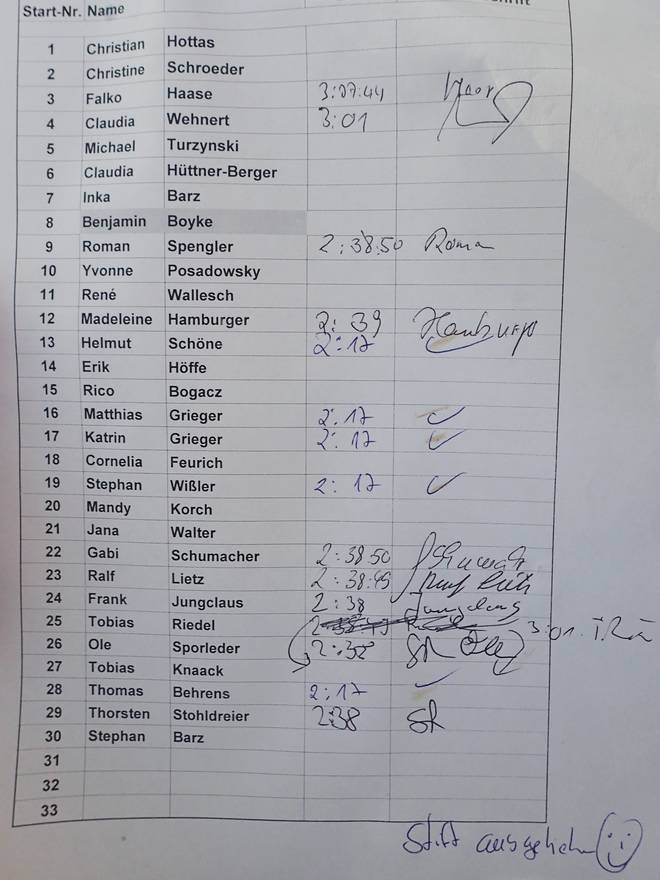 Start-Nr. Name
1 Christian Hottas
2 Christine Schroeder
3 Falko Haase 3:07:44
4 Claudia Wehnert 3:01
5 Michael Turzynski
6 Claudia Hüttner-Berger
7 Inka Barz
8 Benjamin Boyke
9 Roman Spengler 2:38:50 Roman
10 Yvonne Posadowsky
11 René Wallesch
12 Madeleine Hamburger 2:39 Hamburger
13 Helmut Schöne 2:17
14 Erik Höffe
15 Rico Bogacz
16 Matthias Grieger 2:17 ✓
17 Katrin Grieger 2:17 ✓
18 Cornelia Feurich
19 Stephan Wißler 2:17 ✓
20 Mandy Korch
21 Jana Walter
22 Gabi Schumacher 2:38:50
23 Ralf Lietz 2:38:49
24 Frank Jungclaus 2:38 Jungclaus
25 Tobias Riedel 3:01
26 Ole Sporleder
27 Tobias Knaack
28 Thomas Behrens 2:17 ✓
29 Thorsten Stohldreier 2:38
30 Stephan Barz
31
32
33
Stift